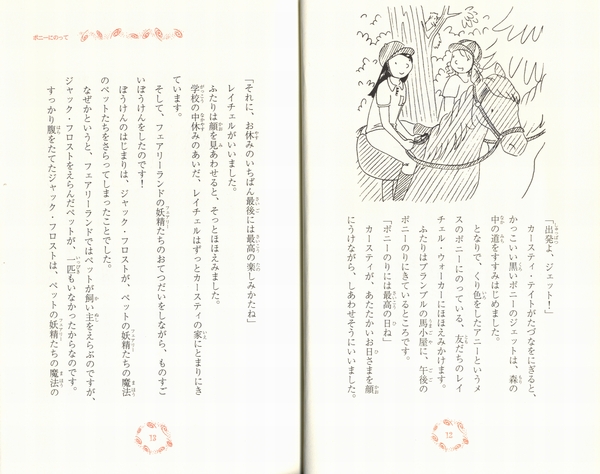 「出発よ、ジェット！」
カースティ・テイトがたづなをにぎると、
かっこいい黒いポニーのジェットは、森の
中の道をすすみはじめました。
となりで、くり色をしたアニーというメ
スのポニーにのっている、友だちのレイ
チェル・ウォーカーにほほえみかけます。
ふたりはブランブルの馬小屋に、午後の
ポニーのりにきているところです。
「ポニーのりには最高の日ね」
カースティが、あたたかいお日さまを顔
にうけながら、しあわせそうにいいました。
12
ポニーにのって
「それに、お休みのいちばん最後には最高の楽しみかたね」
レイチェルがいいました。
ふたりは顔を見あわせると、そっとほほえみました。
学校の中休みのあいだ、レイチェルはずっとカースティの家にとまりにき
ています。
そして、フェアリーランドの妖精たちのおてつだいをしながら、ものすご
いぼうけんをしたのです！
ぼうけんのはじまりは、ジャック・フロストが、ペットの妖精たちの魔法
のペットたちをさらってしまったことでした。
なぜかというと、フェアリーランドではペットが飼い主をえらぶのですが、
ジャック・フロストをえらんだペットが、一匹もいなかったからなのです。
すっかり腹をたてたジャック・フロストは、ペットの妖精たちの魔法の
13